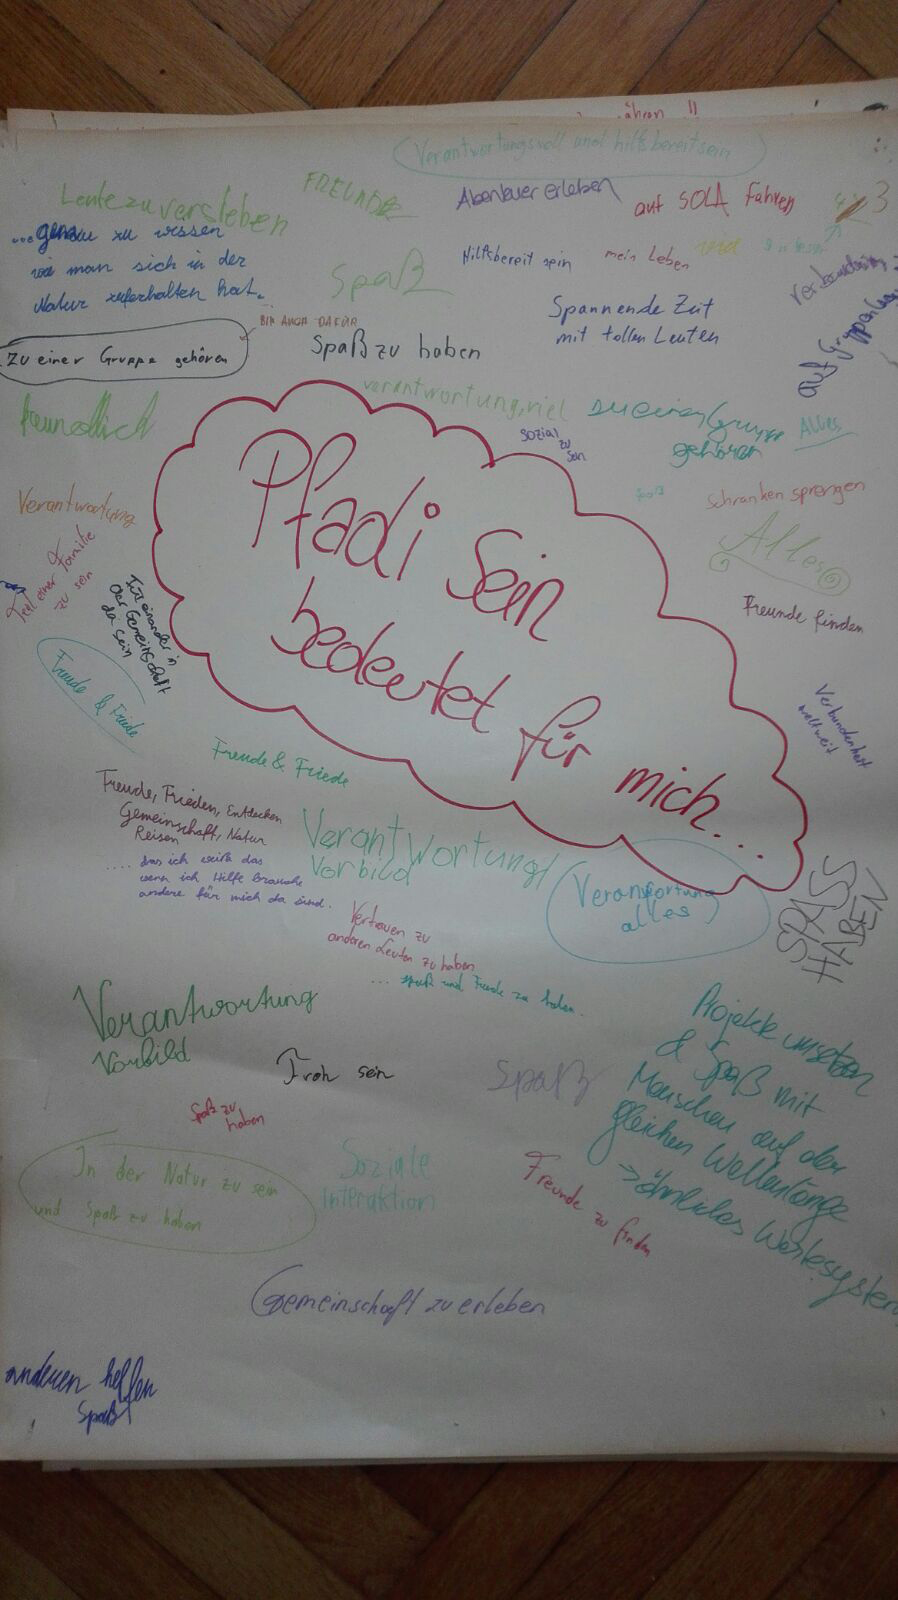 Verantwortungsvoll und hilfsbereitsein
Leute zu
FREUNDE
Abenteuer erleben
auf SOLA fahren
3
...genau zu wissen
wie man sich in der
Natur zuferhalten hat.
Spaß
Hilfsbereit sein
mein Leben
viel
Spannende Zeit
mit tollen Leuten
BIN AUCH DAFÜR
Zu einer Gruppe gehören
Spaß zu haben
verantwortung, viel
zu einer Gruppe
gehören
Alles
freundlich
sozial
zu
sein
Spaß
Schranken sprengen
Alles
Freunde finden
Verantwortung
Teil einer Familie
zu sein
Füreinander in
der Gemeinschaft
da sein
Freude & Friede
Pfadi sein
bedeutet für
mich...
Verbundenheit
weltweit
Freude & Friede
Freude, Frieden, Entdecken
Gemeinschaft, Natur
Reisen
.... das ich weiß das
wenn ich Hilfe brauche
andere für mich da sind.
Verantwortung/
Vorbild
Verantwortung
alles
SPASS
HABEN
Vertrauen zu
anderen Leuten zu haben
... spaß und Freude zu haben.
Verantwortung
Vorbild
Froh sein
Spaß
Projekte umsetzen
& Spaß mit
Menschen auf der
gleichen Wellenlänge
->ähnliches Wertesystem
Spaß zu
haben
In der Natur zu sein
und Spaß zu haben
Soziale
Interaktion
Freunde zu finden
Gemeinschaft zu erleben
anderen helfen
Spaß